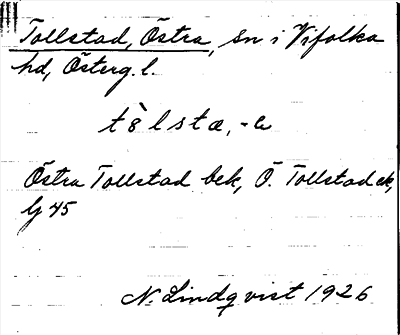 Tollstad, Östra, sn i Vifolka
hd, Österg. l.
Östra Tollstad bek, Ö. Tollstad ek,
45
N. Lindqvist 1926